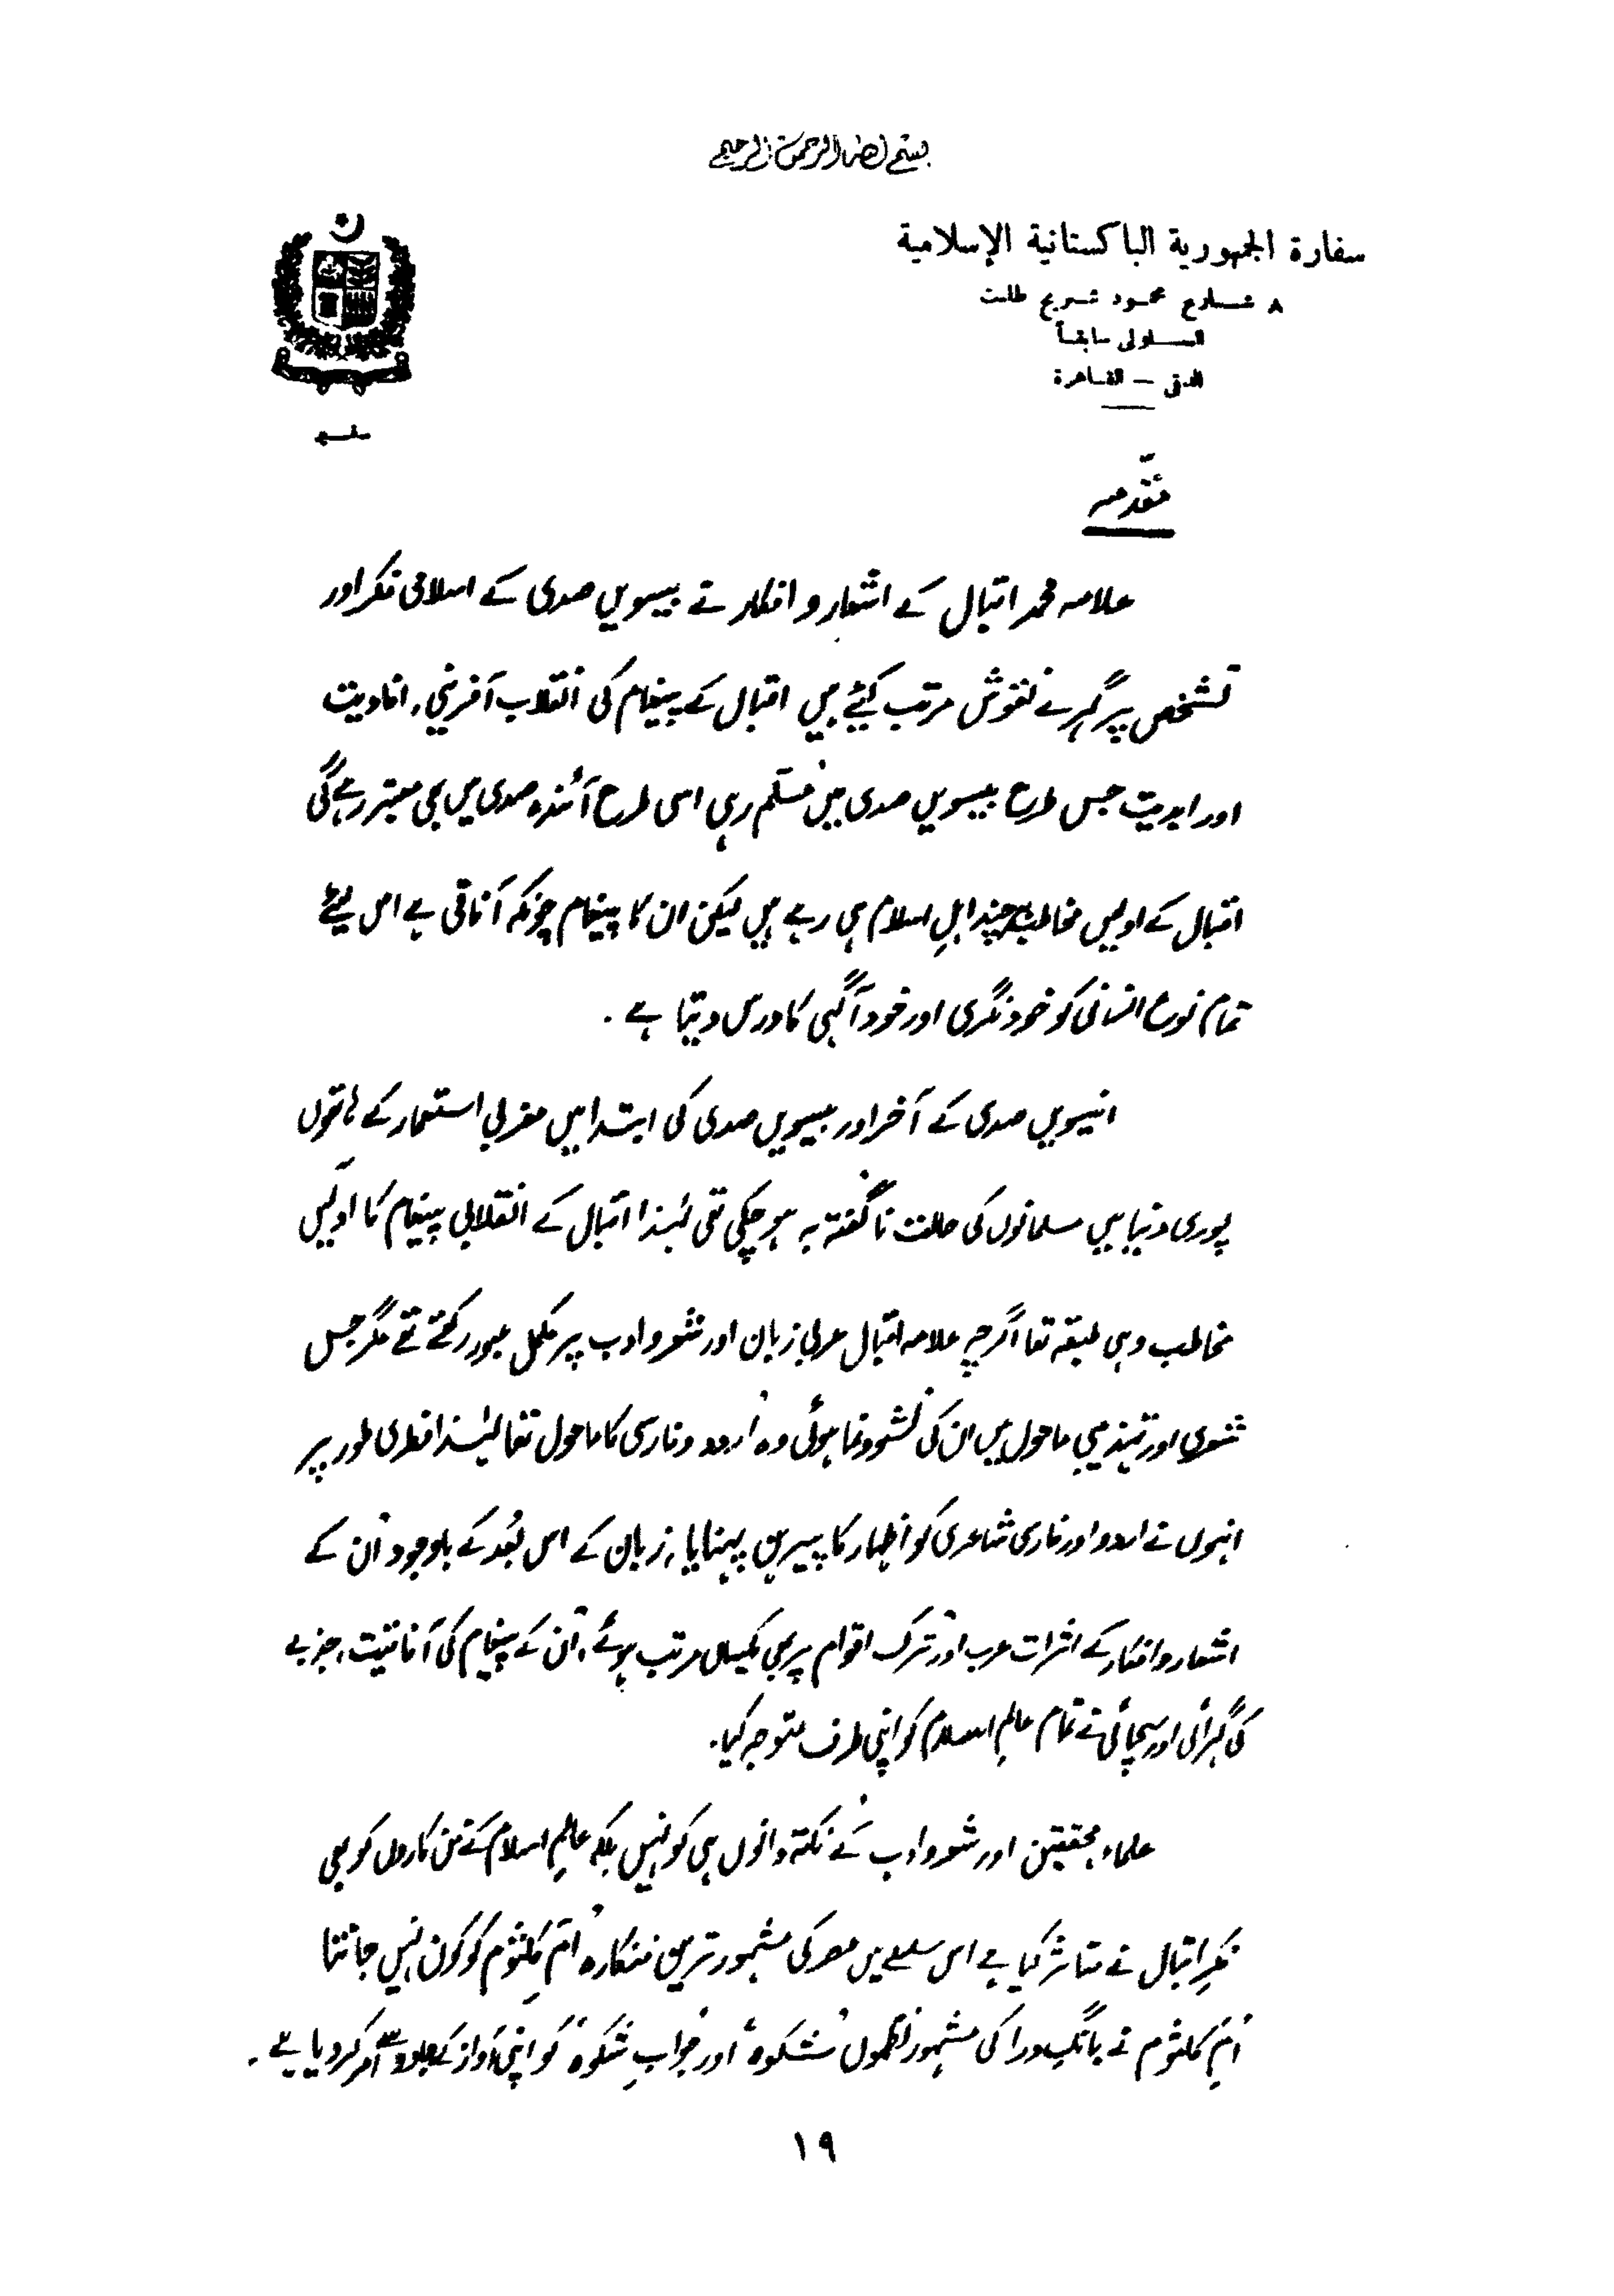 بسم الله الرحمن الرحيم
سفارة الجمهورية الباكستانية الإسلامية
٨ شارع محمود شريح طلعت
السلولى سابقاً
الدقى — القاهرة
مقدمہ
علامہ محمد اقبال کے اشعار و افکار نے بیسویں صدی کے اسلامی فکر اور
تشخص پر گہرے نقوش مرتب کیئے ہیں اقبال کے پیغام کی انقلاب آفرینی، افادیت
اور ابدیت جس طرح بیسویں صدی میں مسلّم رہی اسی طرح آئندہ صدی میں بھی معتبر رہے گی
اقبال کے اولیں مخاطب ہرچند اہلِ اسلام ہی رہے ہیں لیکن ان کا پیغام چونکہ آفاقی ہے اس لیئے
تمام نوع انسانی کو خود نگری اور خود آگہی کا درس دیتا ہے .
انیسویں صدی کے آخر اور بیسویں صدی کی ابتدا میں مغربی استعمار کے ہاتھوں
پوری دنیا میں مسلمانوں کی حالت ناگفتہ بہ ہو چکی تھی لہٰذا اقبال کے انقلابی پیغام کا اوّلیں
مخاطب وہی طبقہ تھا اگرچہ علامہ اقبال عربی زبان اور شعر و ادب پر مکمل عبور رکھتے تھے مگر جس
شعری اور تہذیبی ماحول میں ان کی نشوونما ہوئی وہ اُردو و فارسی کا ماحول تھا لہٰذا فطری طور پر
انہوں نے اردو اور فارسی شاعری کو اظہار کا پیرہن پہنایا، زبان کے اس بُعد کے باوجود اُن کے
اشعار و افکار کے اثرات عرب اور ترک اقوام پر بھی یکساں مرتب ہوئے، اُن کے پیغام کی آفاقیت، جذبے
کی گہرائی اور سچائی نے تمام عالمِ اسلام کو اپنی طرف متوجہ کیا.
علماء، محققین اور شعر و ادب کے نکتہ دانوں ہی کو نہیں بلکہ عالمِ اسلام کے فن کاروں کو بھی
فکرِ اقبال نے متاثر کیا ہے اس سلسلے میں مصر کی مشہور ترین فنکارہ اُمِّ کلثوم کو کون نہیں جانتا
اُمِّ کلثوم نے بانگِ درا کی مشہور نظموں "شکوہ" اور "جوابِ شکوہ" کو اپنی آواز کے جادو سے امر کر دیا ہے .
١٩